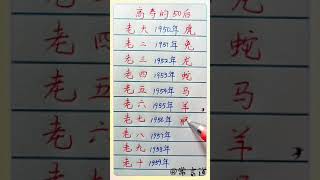 高寿的50后
老大 1950年 虎
老二 1951年 兔
老三 1952年 龙
老四 1953年 蛇
老五 1954年 马
老六 1955年 羊
老七 1956年 猴
老八 1957年
老九 1958年
老十 1959年
@常言道